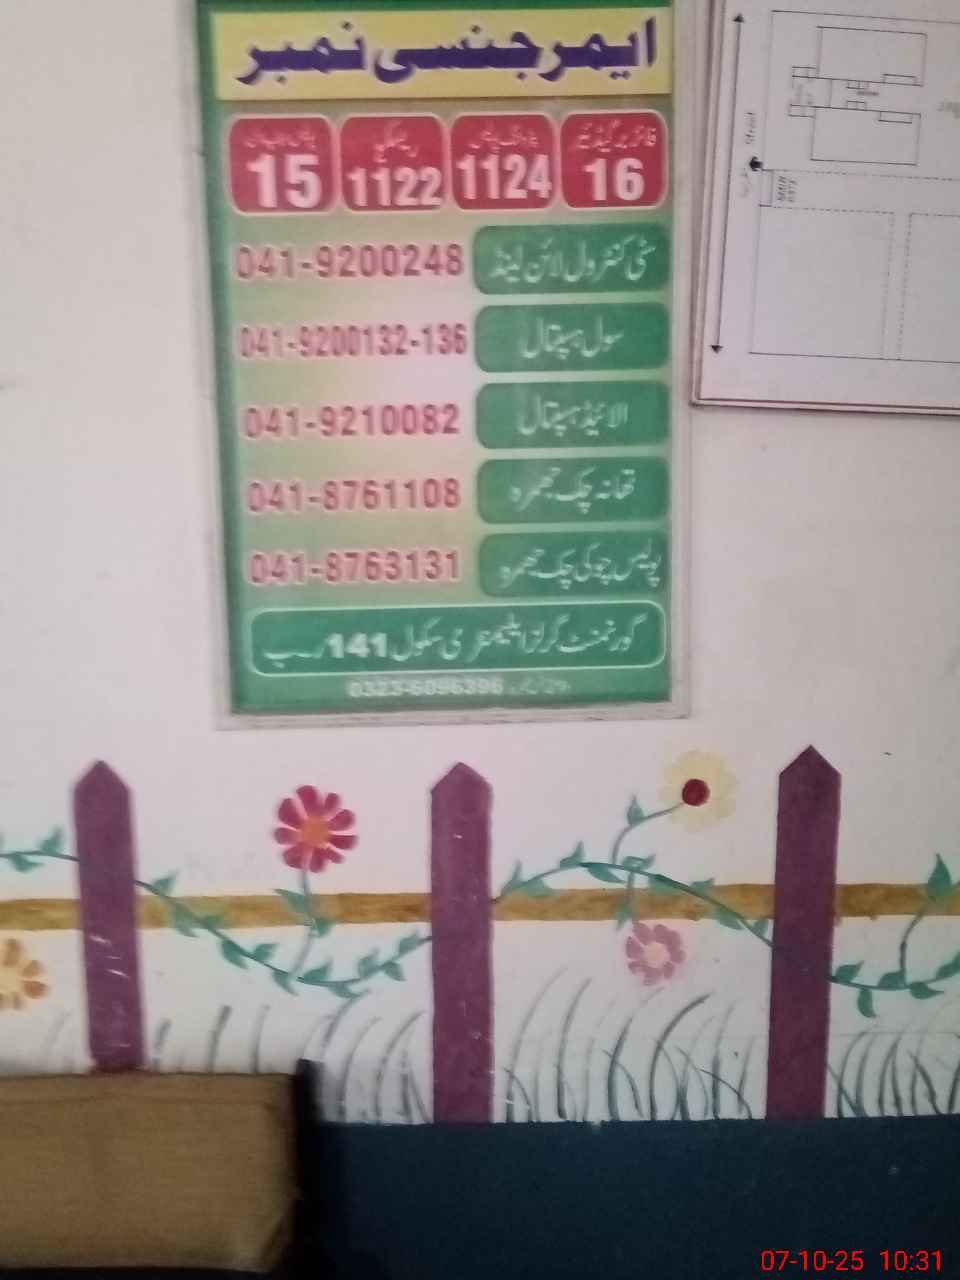 ایمرجنسی نمبر
فائر بریگیڈیئر
16
1124
ریسکیو
1122
15
سٹی کنٹرول لائن لینڈ 041-9200248
سول ہسپتال 041-9200132-136
الائیڈ ہسپتال 041-9210082
تھانہ چک جھمرہ 041-8761108
پولیس چوکی چک جھمرہ 041-8763131
گورنمنٹ گرلز ایلیمنٹری سکول 141 ر۔ب
0323-6096396
Street
MAIN GATE
07-10-25 10:31